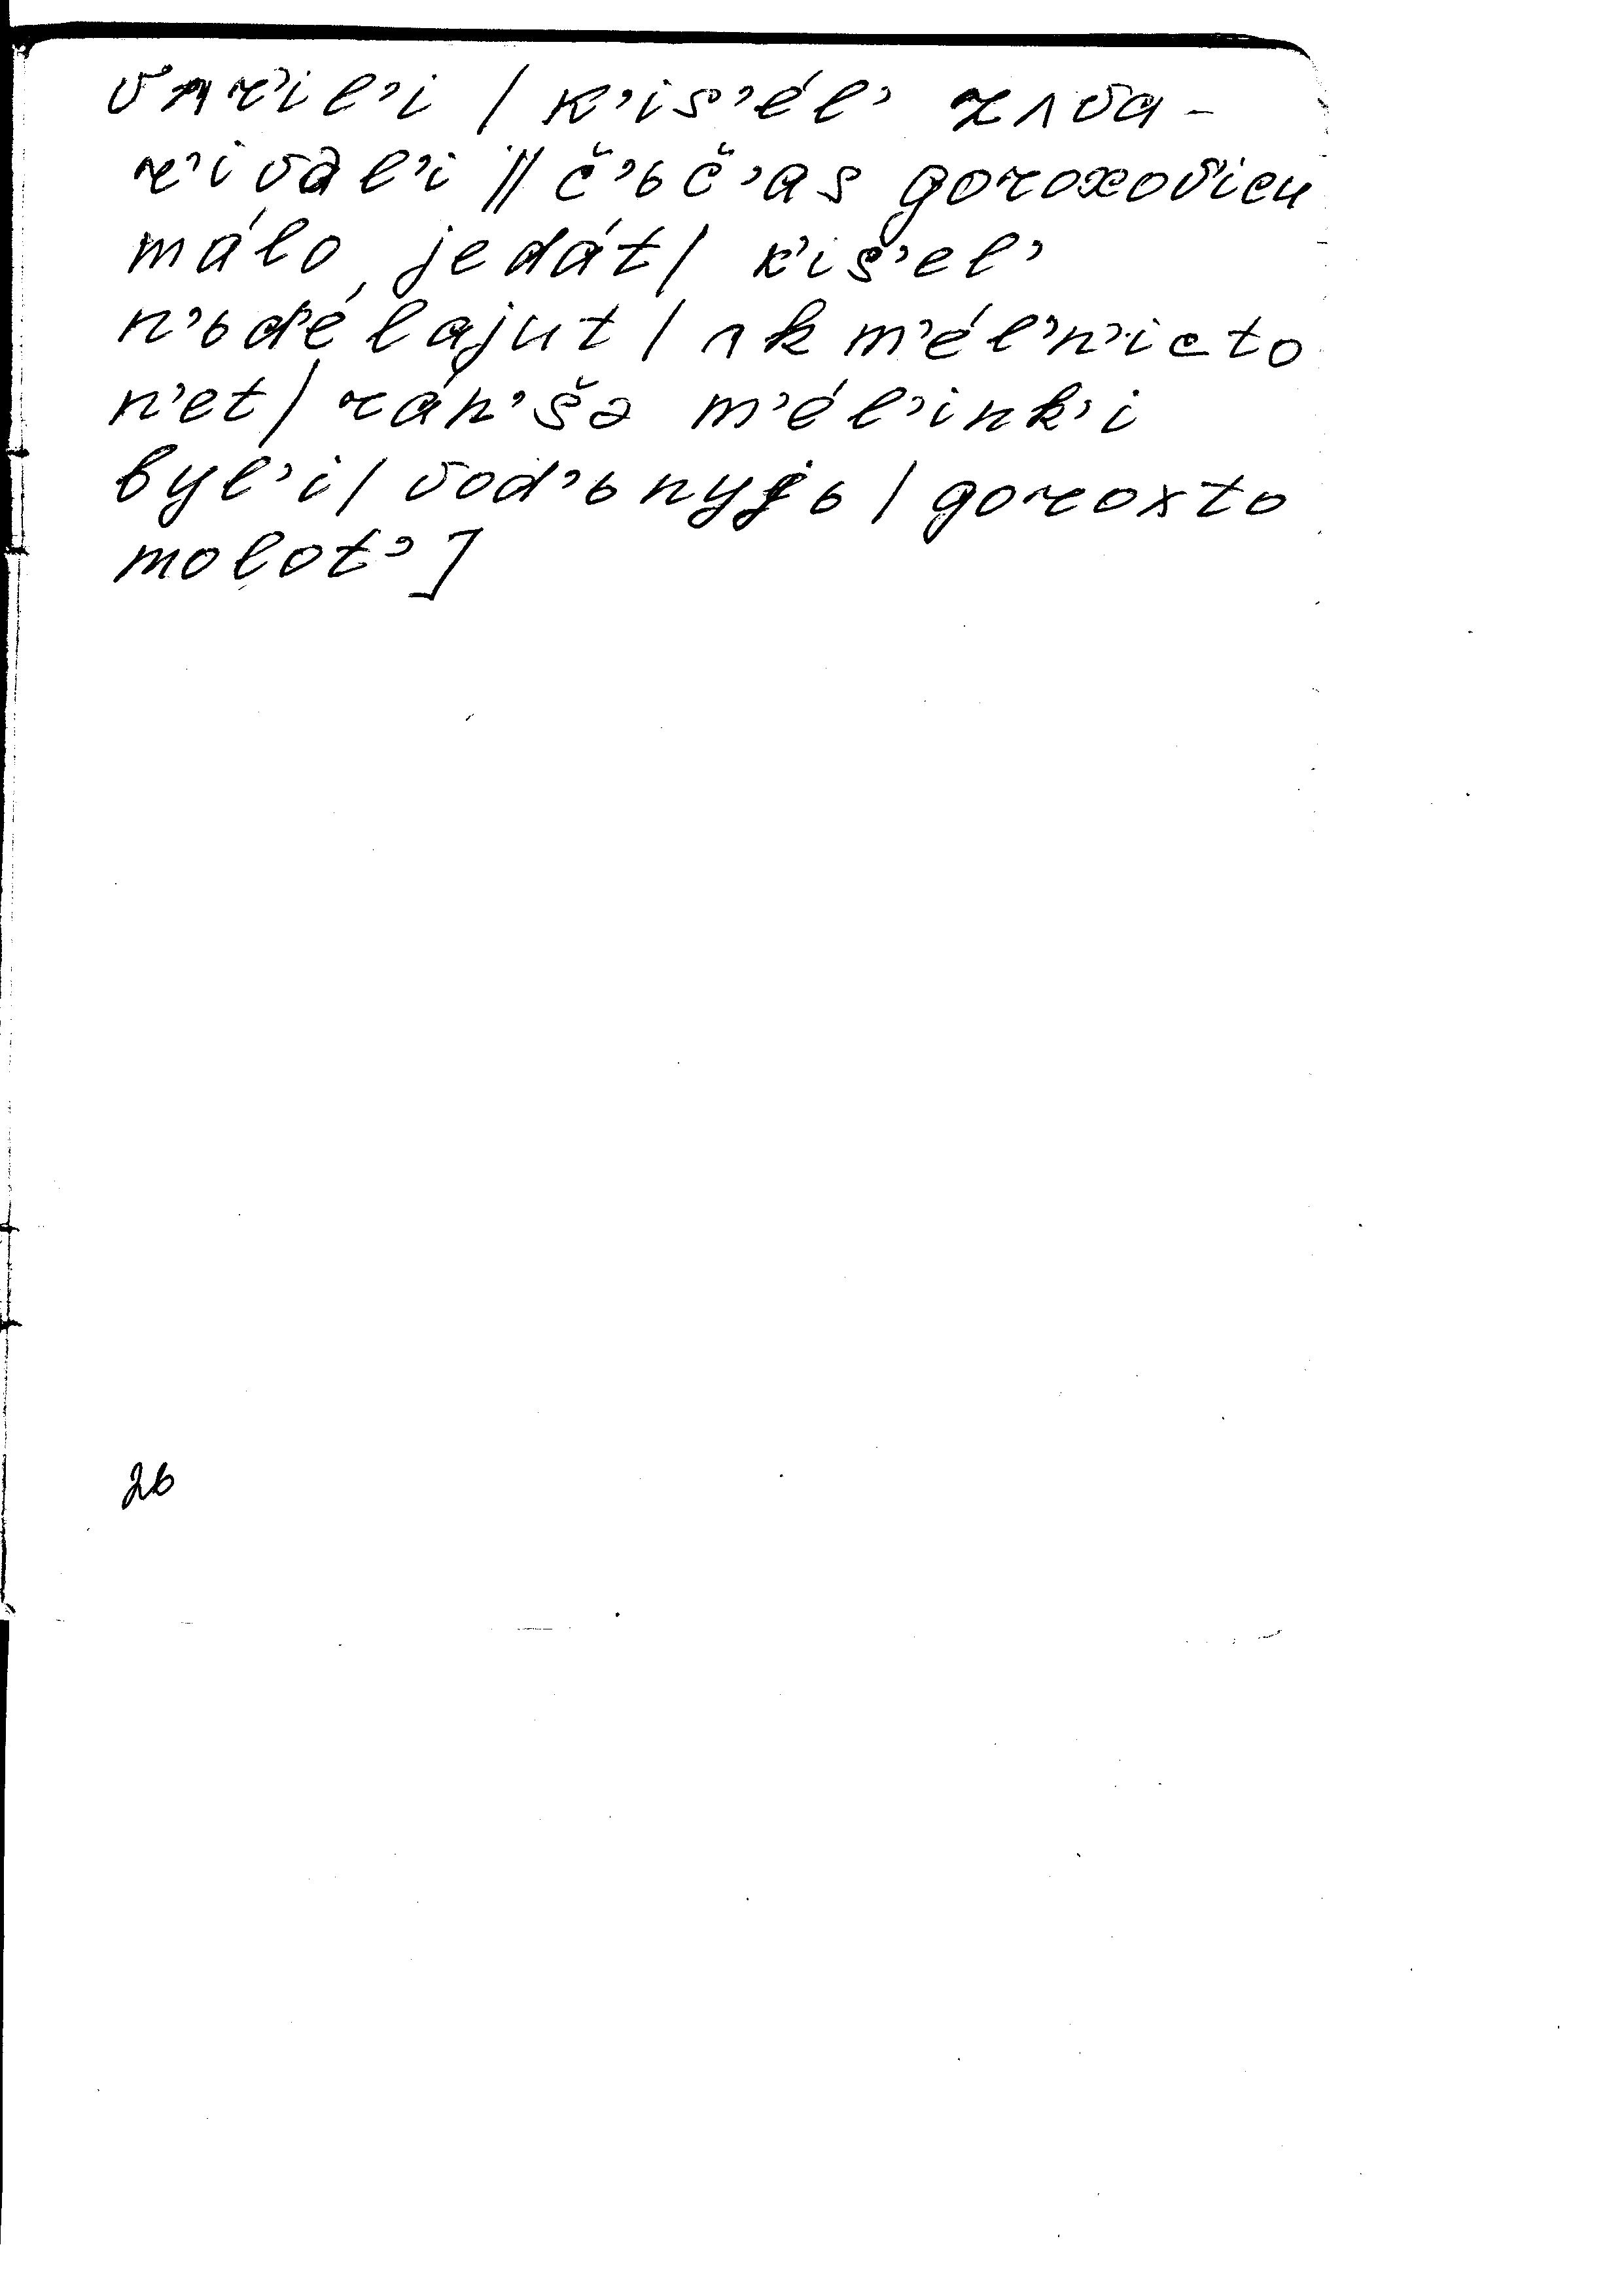 vʌr’il’i / k’is’él’ zʌva-
r’ival’i // č’ьč’as goroxov’icu
málo jedát / k’is’el’
n’ьd’élajut / ʌk m’él’n’icto
n’et / rán’šə m’él’ink’i
byl’i / vod’ьnyjь / goroxto
molot’]
26